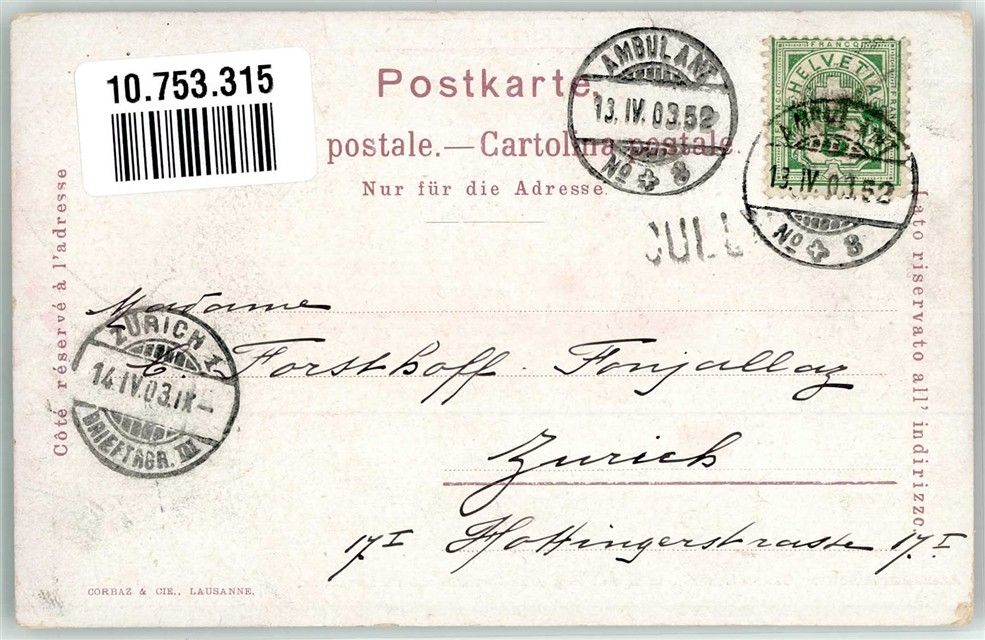 10.753.315
Postkarte.
postale.—Cartolina postale.
Nur für die Adresse.
AMBULANT
13.IV.03.52
No 8
FRANCO
HELVETIA
AMBULANT
13.IV.03.52
No 8
CULL
Côté réservé à l'adresse
Lato riservato all' indirizzo.
Madame
Forsthoff-Fonjallaz
Zurich
17I Hottingerstrasse 17.I
ZÜRICH 1
14.IV.03.IX—
BRIEFTRGR. III
CORBAZ & CIE., LAUSANNE.